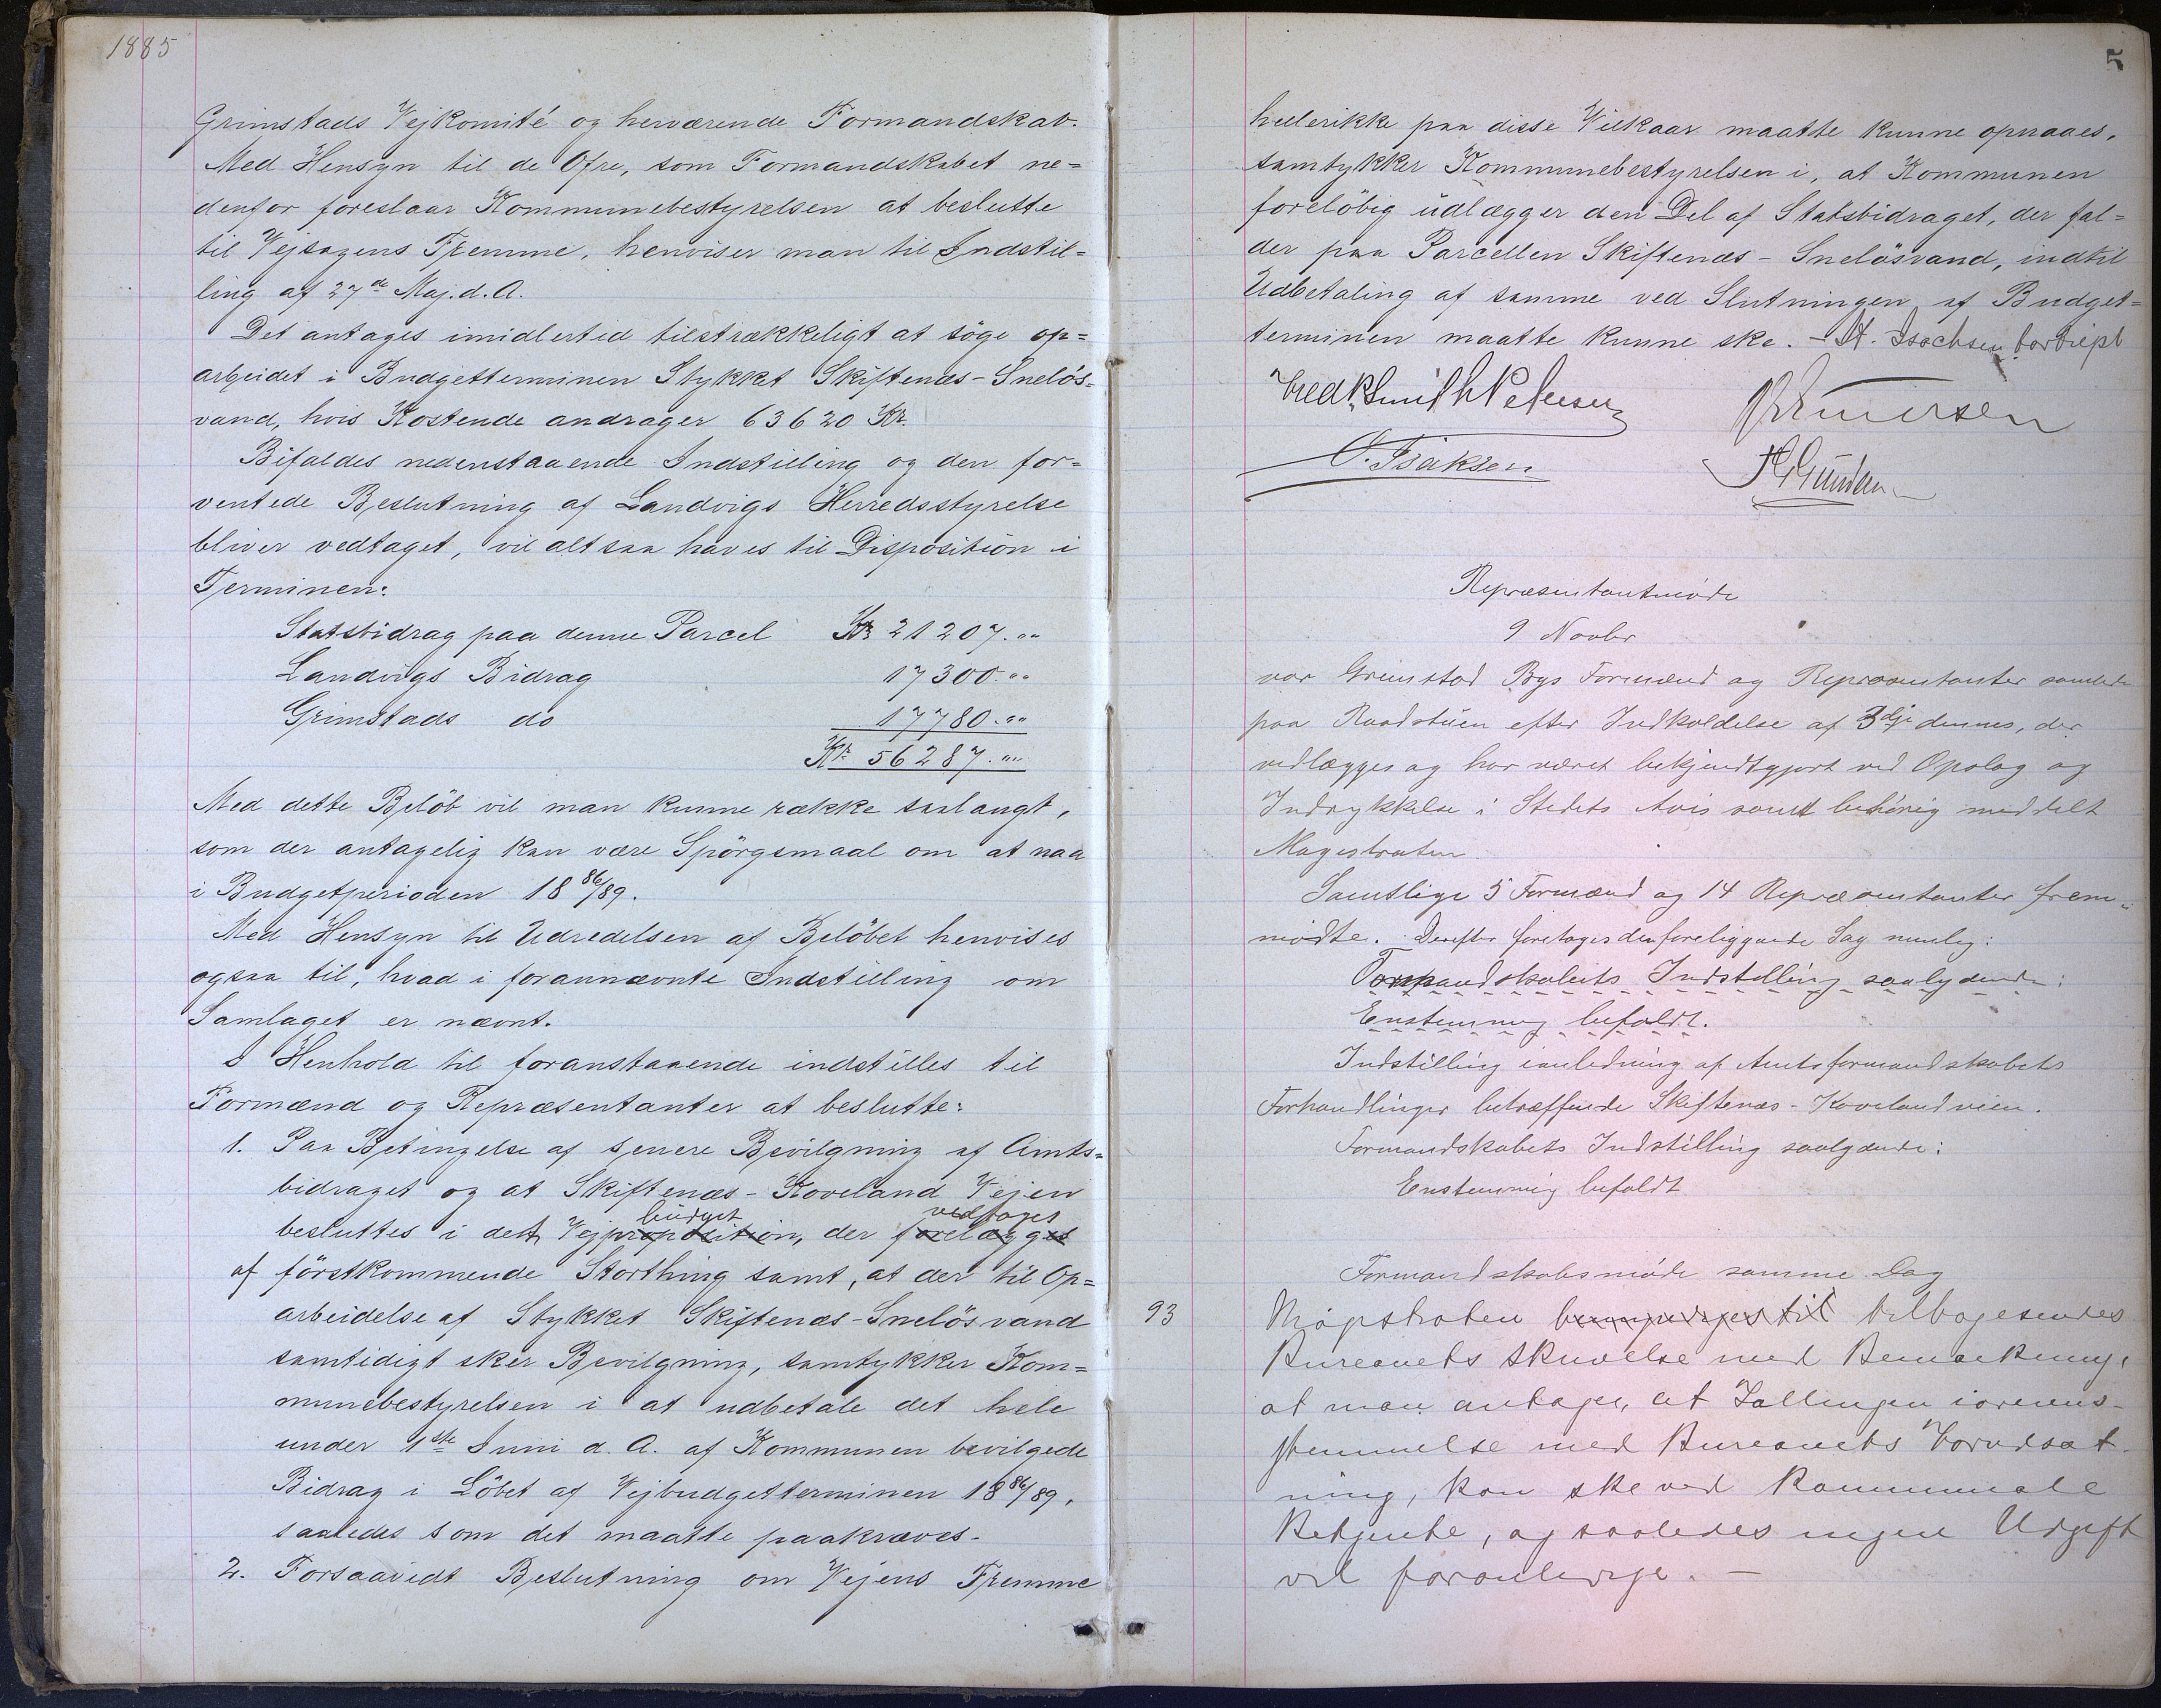 1885
Grimstads Vejkomité og herværende Formandskab.
Med Hensyn til de Ofre, som Formandskabet ne=
denfor foreslaar Kommunebestyrelsen at beslutte
til Vejsagens Fremme, henviser man til Indstil=
ling af 27de Maj. d. A.
Det antages imidlertid tilstrækkeligt at söge op=
arbeidet i Budgetterminen Stykket Skiftenæs-Snelös=
vand, hvis Kostende andrager 63620 Kr.
Bifaldes nedenstaaende Indstilling og den for=
ventede Beslutning af Landvigs Herredsstyrelse
bliver vedtaget, vil altsaa haves til Disposition i
Terminen:
Statsbidrag paa denne Parcel Kr 21207.""
Landvigs Bidrag 17300.""
Grimstads do 17780.""
Kr. 56287.""
Med dette Belöb vil man kunne række saalangt,
som der antagelig kan være Spörgsmaal om at naa
i Budgetperioden 1886/89.
Med Hensyn til Udredelsen af Belöbet henvises
ogsaa til, hvad i forannævnte Indstilling om
Samlaget er nævnt.
I Henhold til foranstaaende indstilles til
Formænd og Repræsentanter at beslutte:
1. Paa Betingelse af senere Bevilgning af Amts=
bidraget og at Skiftenæs-Koveland Vejen
budget vedtages
besluttes i det Vejproposition, der forelægges
af förstkommende Storthing samt, at der til Op=
arbeidelse af Stykket Skiftenæs-Snelösvand
samtidigt sker Bevilgning, samtykker Kom=
munebestyrelsen i at udbetale det hele
under 1ste Juni d. A. af Kommunen bevilgede
Bidrag i Löbet af Vejbudgetterminen 1886/89,
saaledes som det maatte paakræves.
2. Forsaavidt Beslutning om Vejens Fremme
5
hellerikke paa disse Vilkaar maatte kunne opnaaes,
samtykker Kommunebestyrelsen i, at Kommunen
forelöbig udlægger den Del af Statsbidraget, der fal=
der paa Parcellen Skiftenæs-Snelösvand, indtil
Udbetaling af samme ved Slutningen af Budget=
terminen maatte kunne ske. - St. Isachsen
Fredk Smith Petersen
O. Isaksen
Repræsentantmøde
9 Novbr
var Grimstad Bys Formænd og Repræsentanter samlede
paa Raadstuen efter Indkaldelse af 3dje dennes, der
vedlægges og har været bekjendtgjort ved Opslag og
Indrykkelse i Stedets Avis samt behörig meddelt
Magistraten.
Samtlige 5 Formænd og 14 Repræsentanter frem=
mødte. Derefter foretoges den foreliggende Sag nemlig:
Formandskabets Indstilling saalydende:
Enstemmig bifaldt.
Indstilling ianledning af Amtsformandskabets
Forhandlinger betræffende Skiftenæs-Kovelandveien.
Formandskabets Indstilling saalydende:
Enstemmig bifaldt
Formandskabsmøde samme Dag
93 Magistraten tilbagesendes
Bureauets Skrivelse med Bemærkning,
at man antager, at Tællingen iovereens-
stemmelse med Bureauets Forudsæt-
ning, kan ske ved kommunale
Betjente, og saaledes ingen Udgift
vil foranledige. -